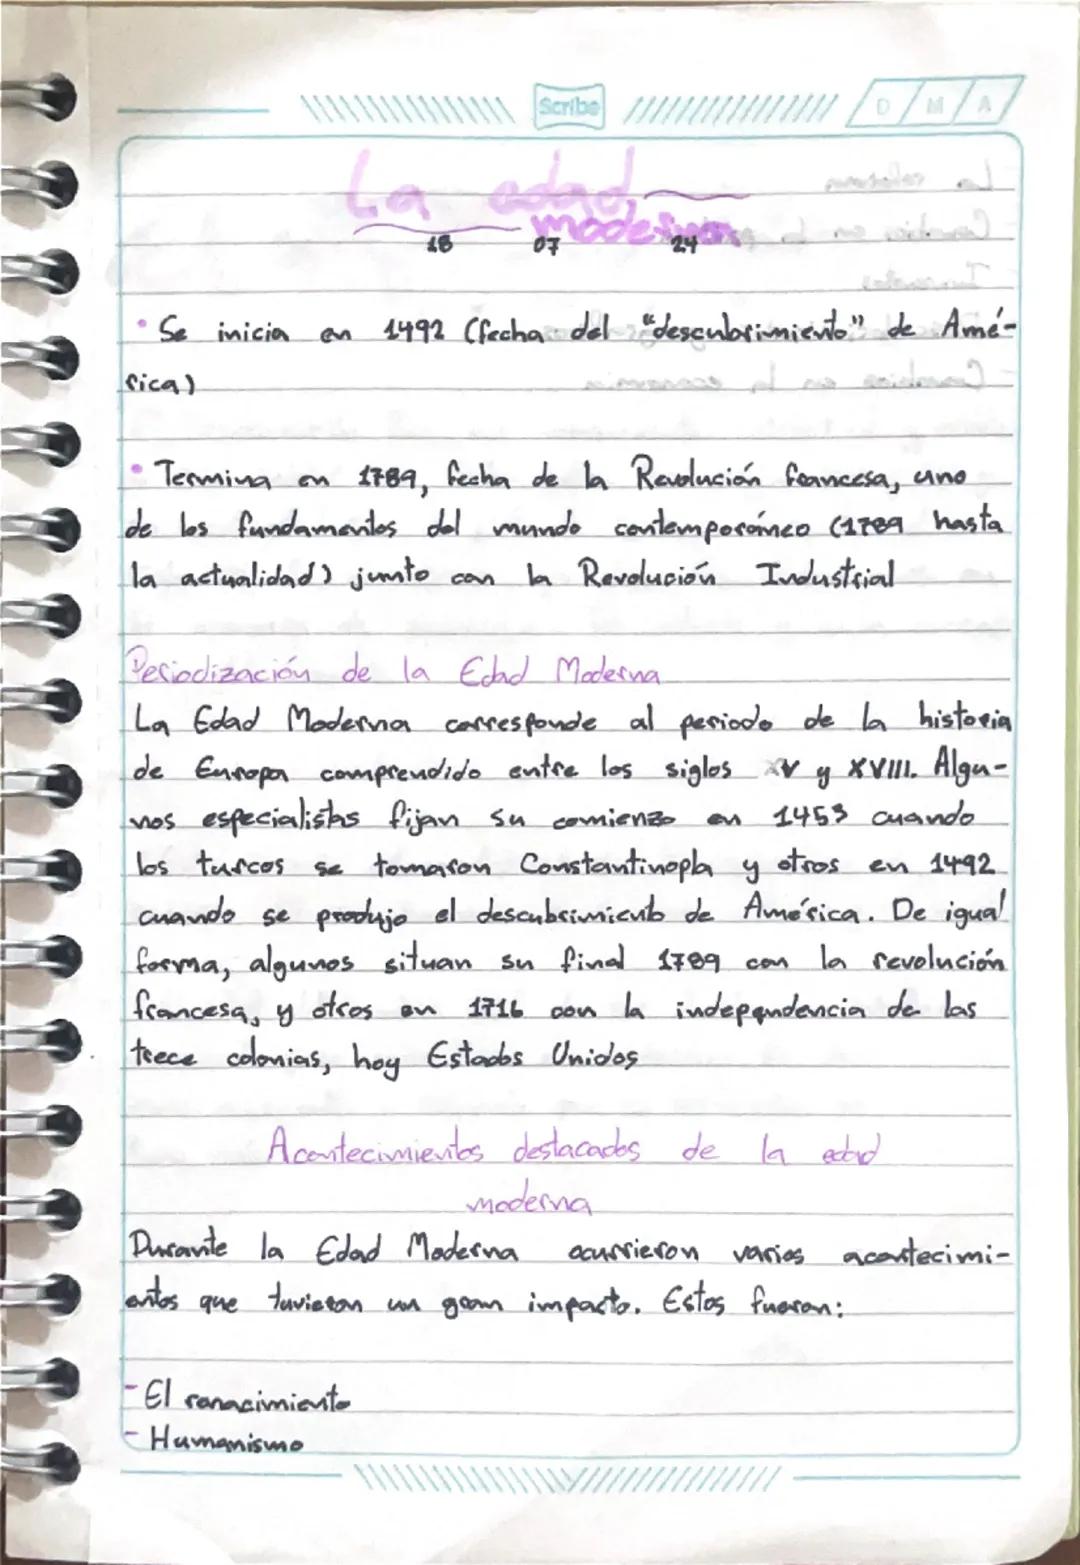 Scribe
D M A
La edad
moderna
18 07 24
• Se inicia en 1492 (fecha del "descubrimiento" de Amé-
rica)
• Termina en 1789, fecha de la Revolución francesa, uno
de los fundamentos del mundo contemporáneo (1789 hasta
la actualidad) junto con la Revolución Industrial
Periodización de la Edad Moderna
La Edad Moderna corresponde al periodo de la historia
de Europa comprendido entre los siglos XV y XVIII. Algu-
nos especialistas fijan su comienzo en 1453 cuando
los turcos se tomaron Constantinopla y otros en 1492
cuando se produjo el descubrimiento de América. De igual
forma, algunos situan su final 1789 con la revolución
francesa, y otros en 1716 con la independencia de las
trece colonias, hoy Estados Unidos
Acontecimientos destacados de la edad
moderna
Durante la Edad Moderna ocurrieron varios acontecimi-
entos que tuvieron un gran impacto. Estos fueron:
- El renacimiento
- Humanismo